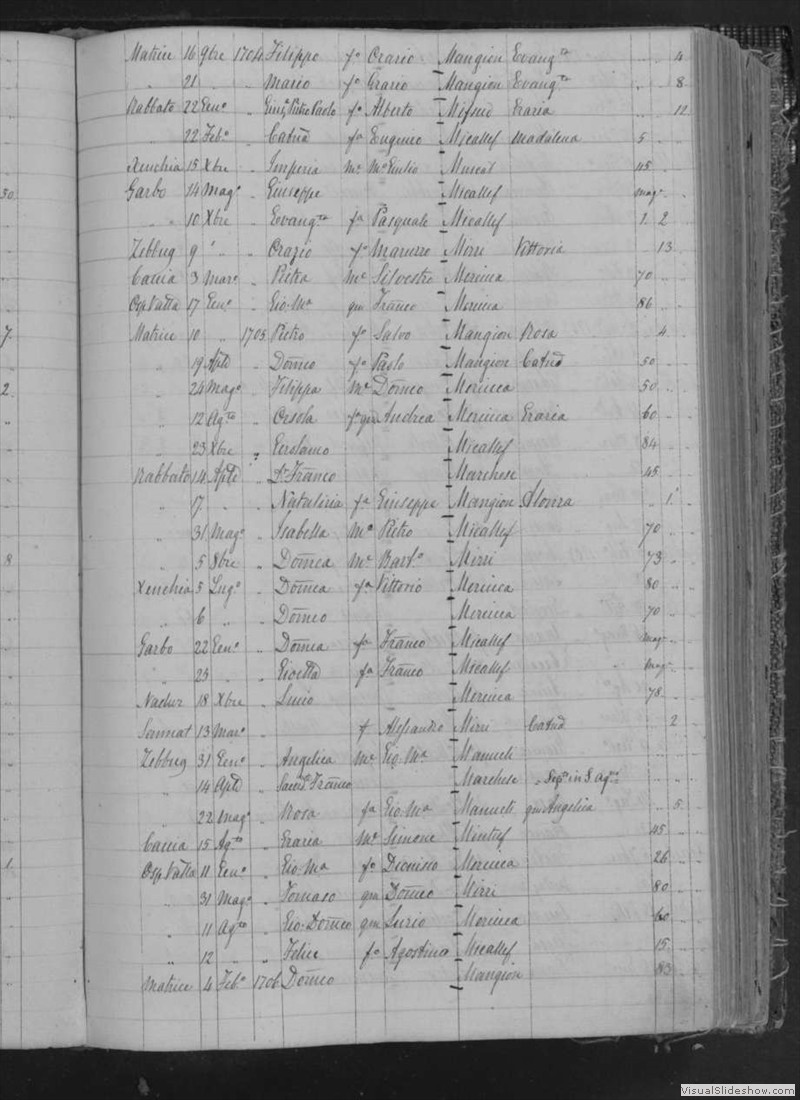 Matrice 16 9bre 1704 Filippo fo Orazio Mangion Evangta " " 4
" 21 " " Mario fo Grazio Mangion Evangta " " 8
Rabbato 22 Geno " Pietro Paolo fo Alberto Mifsud Grazia " " 12
" 22 Febo " Catnd fa Eugenio Micallef Madalena 5
Xeuchia 15 Xbre " Imperia Me Mo Muscat 45
50 Garbo 14 Mago " Giuseppe Micallef mago
" 10 Xbre " Evangta fa Pasquale Micallef 1 2
Zebbug 9 " " Orazio fo Mirri Vittoria " 13
Caccia 3 Maro " Pietra Me Silvestro Mercieca 70
Osp Vatta 17 Geno " Gio Ma qm Franco Mercieca 86
7. Matrice 10 " 1705 Pietro fo Salvo Mangion Rosa " 4
" 19 Aple " Domco fo Paolo Mangion Catnd 50
2 " 24 Mago " Filippa Me Domco Mercieca 50
" 12 Agto " Orsola fa qm Andrea Mercieca Grazia 60
" 23 Xbre " Gerolamo Micallef 84
Rabbato 14 Aple " Dr Franco Marchese 45
" 17 " " Natalizia fa Giuseppe Mangion Alonza " 1
" 31 Mago " Isabella Me Pietro Micallef 70
8 " 5 8bre " Domca Me Barto Mirri 73
Xeuchia 5 Lugo " Domca fa Vittorio Mercieca 80
" 6 " " Domco Mercieca 70
Garbo 22 Geno " Domca fa Franco Micallef mago
" 25 " " fa Franco Micallef mago
Nadur 18 Xbre " Lucio Mercieca 78
Sannat 13 Maro " f Alessandro Mirri Catnd " 2
Zebbug 31 Geno " Angelica Me Gio Ma Manueli
" 14 Aple " Sacerd. Franco Marchese Sepo in S. Ago
" 22 Mago " Rosa fa Gio Ma Manueli qm Angelica " 5
Caccia 15 Agto " Grazia Me Simone Mintuf 45
1. Osp Vatta 11 Geno " Gio Ma fo Dionisio Mercieca 26
" 31 Mago " Tomaso qm Domco Mirri 80
" 11 Agto " Gio Domco qm Mercieca 60
" 12 " " Felice fo Agostino Micallef 15
Matrice 4 Febo 1706 Domco Mangion 83
VisualSlideshow.com